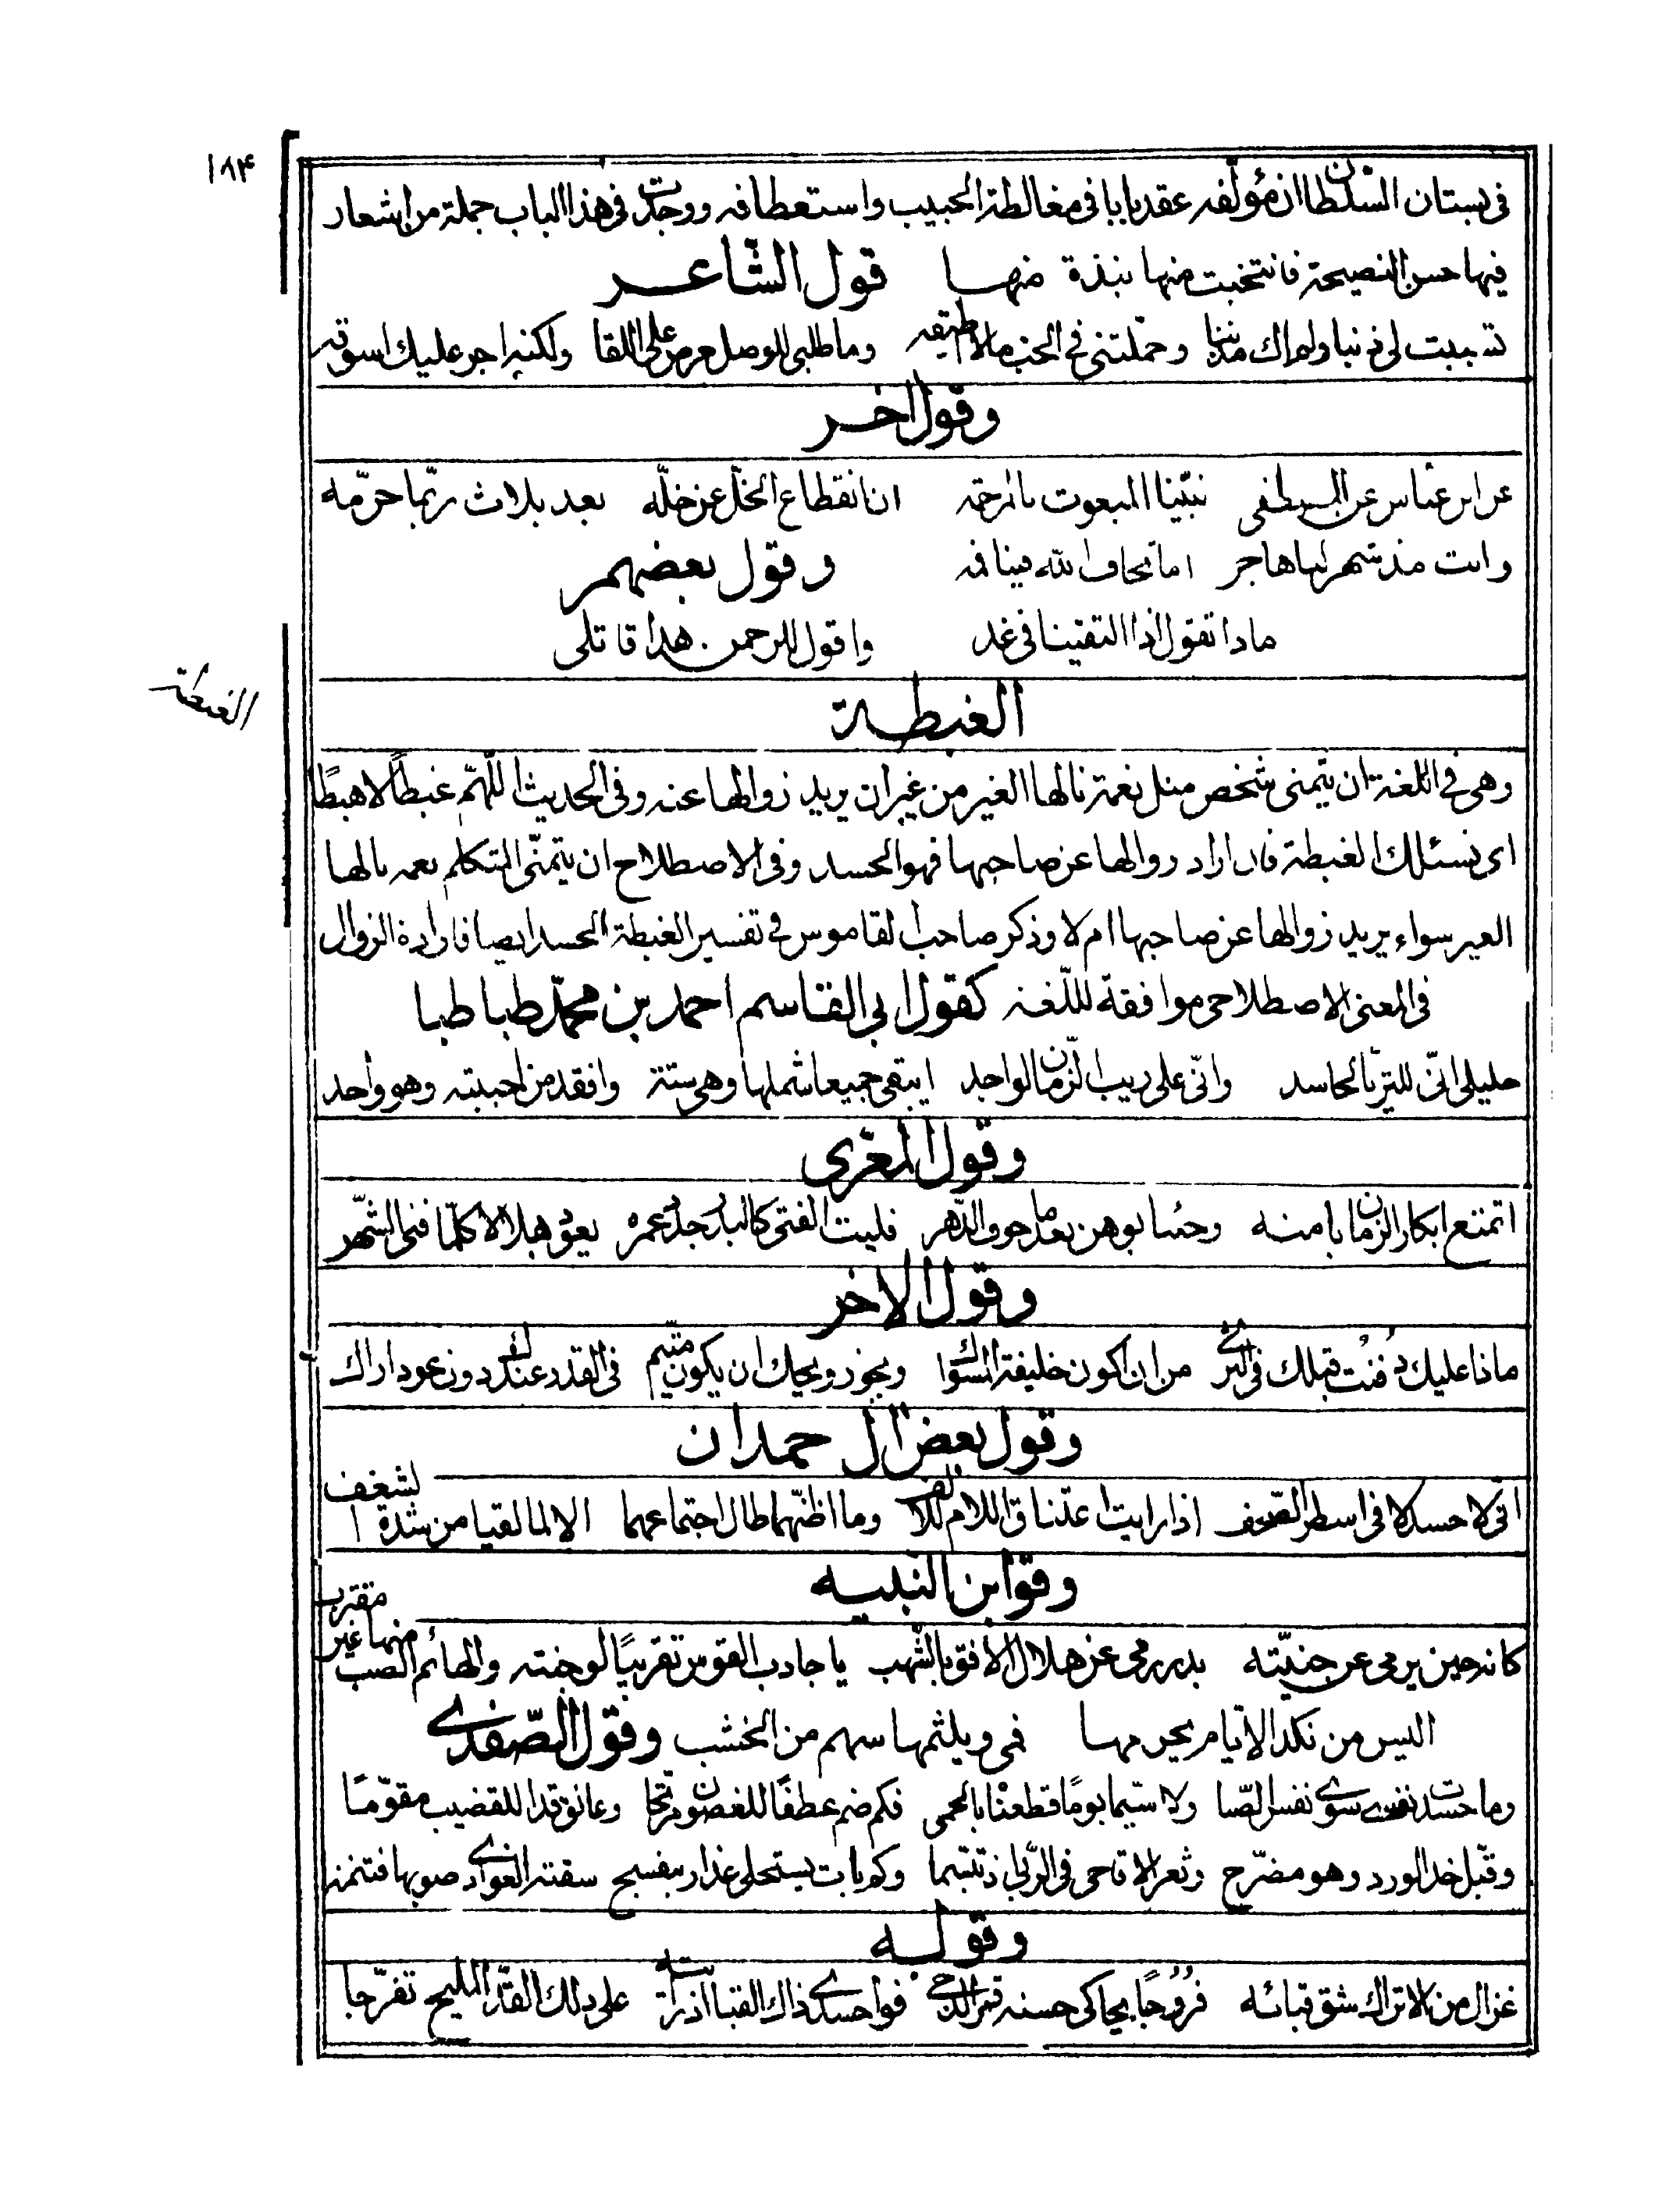 ١٨۴
فى بستان السلطان ان مؤلفه عقد بابا فى مغالطة الحبيب واستعطافه ووجدت فى هذا الباب جملة من اشعار
فيها حسن النصيحة فانتخبت منها نبذة منها قول الشاعر
تسببت لى ذنبا ولم اك مذنبا وحمّلتنى فى الحب ما لا اطيقه وما طلبى للوصل حرص على اللقا ولكنه اجر عليك اسوقه
وقول اخر
عن ابن عباس عن المصطفى نبيّنا المبعوث بالرحمة ان انقطاع الخلّ عن خلّه بعد ثلاث ربّما حرّمه
وانت مذ شهر لنا هاجر اما تخاف الله فينا فه وقول بعضهم
ماذا تقول اذا التقينا فى غد واقول للرحمن هذا قاتلى
الغبطة
الغبطة
وهى فى اللغة ان يتمنى شخص مثل نعمة نالها الغير من غير ان يريد زوالها عنه وفى الحديث اللّهمّ غبطًا لا هبطًا
اى نسئلك الغبطة فان اراد زوالها عن صاحبها فهو الحسد وفى الاصطلاح ان يتمنّى المتكلم نعمه نالها
الغير سواء يريد زوالها عن صاحبها ام لا وذكر صاحب القاموس فى تفسير الغبطة الحسد ايضا فارادة الزوال
فى المعنى الاصطلاحى موافقة للّغة كقول ابى القاسم احمد بن محمّد طباطبا
خليلى انّى للثريّا لحاسد وانّى على ريب الزمان لواجد ايبقى جميعا شملها وهى ستة وافقد من احببته وهو واحد
وقول المعرّى
اتمتع ابكار الزمان بامنه وجئنا بوهن بعد ما خوف الدّهر فليت الفتى كالبدر جدّد عمره يعود هلالا كلّما فنى الشّهر
وقول الاخر
ماذا عليك دُفنتُ قبلك فى الثرى من ان اكون خليفة لسواك ويجوز ويحك ان يكون متيّم فى القدر عندك دون عود اراك
وقول بعض آل حمدان
انّى لاحسد لا فى اسطر الصّحف اذا رايت اعتناق اللام للالف وما اظنّهما طال اجتماعهما الا لما لقيا من شدة الشغف
وقول ابن النبيه
كانه حين يرمى عن حنيّته بدر رمى عن هلال الافق بالشهب يا جاذب القوس تقريبًا لوجنته والهائم الصب منها غير مقترب
اليس من نكد الايام يحرمها فمى ويلثمها سهم من الخشب وقول الصّفدى
وما حسدت نفسى سوى نفس الصّبا ولا سيّما يومًا قطعنا بالحمى فكم ضم عطفًا للغصون مرنّحا وعانق قدا للقضيب مقوّمًا
وقبّل خد الورد وهو مضرّج وثغر الاقاحى فى الربى اذ تبسّما وكم بات يستحلى عذار بنفسج سقته الغوادى صوبها فتنمنم
وقوله
غزال من الاتراك شق قبائه فُرُوجًا يحاكى حسنه قمر الدجى فواحسدى ذاك القبا اذ رأيته على ذلك القدّ المليح تفرّجا